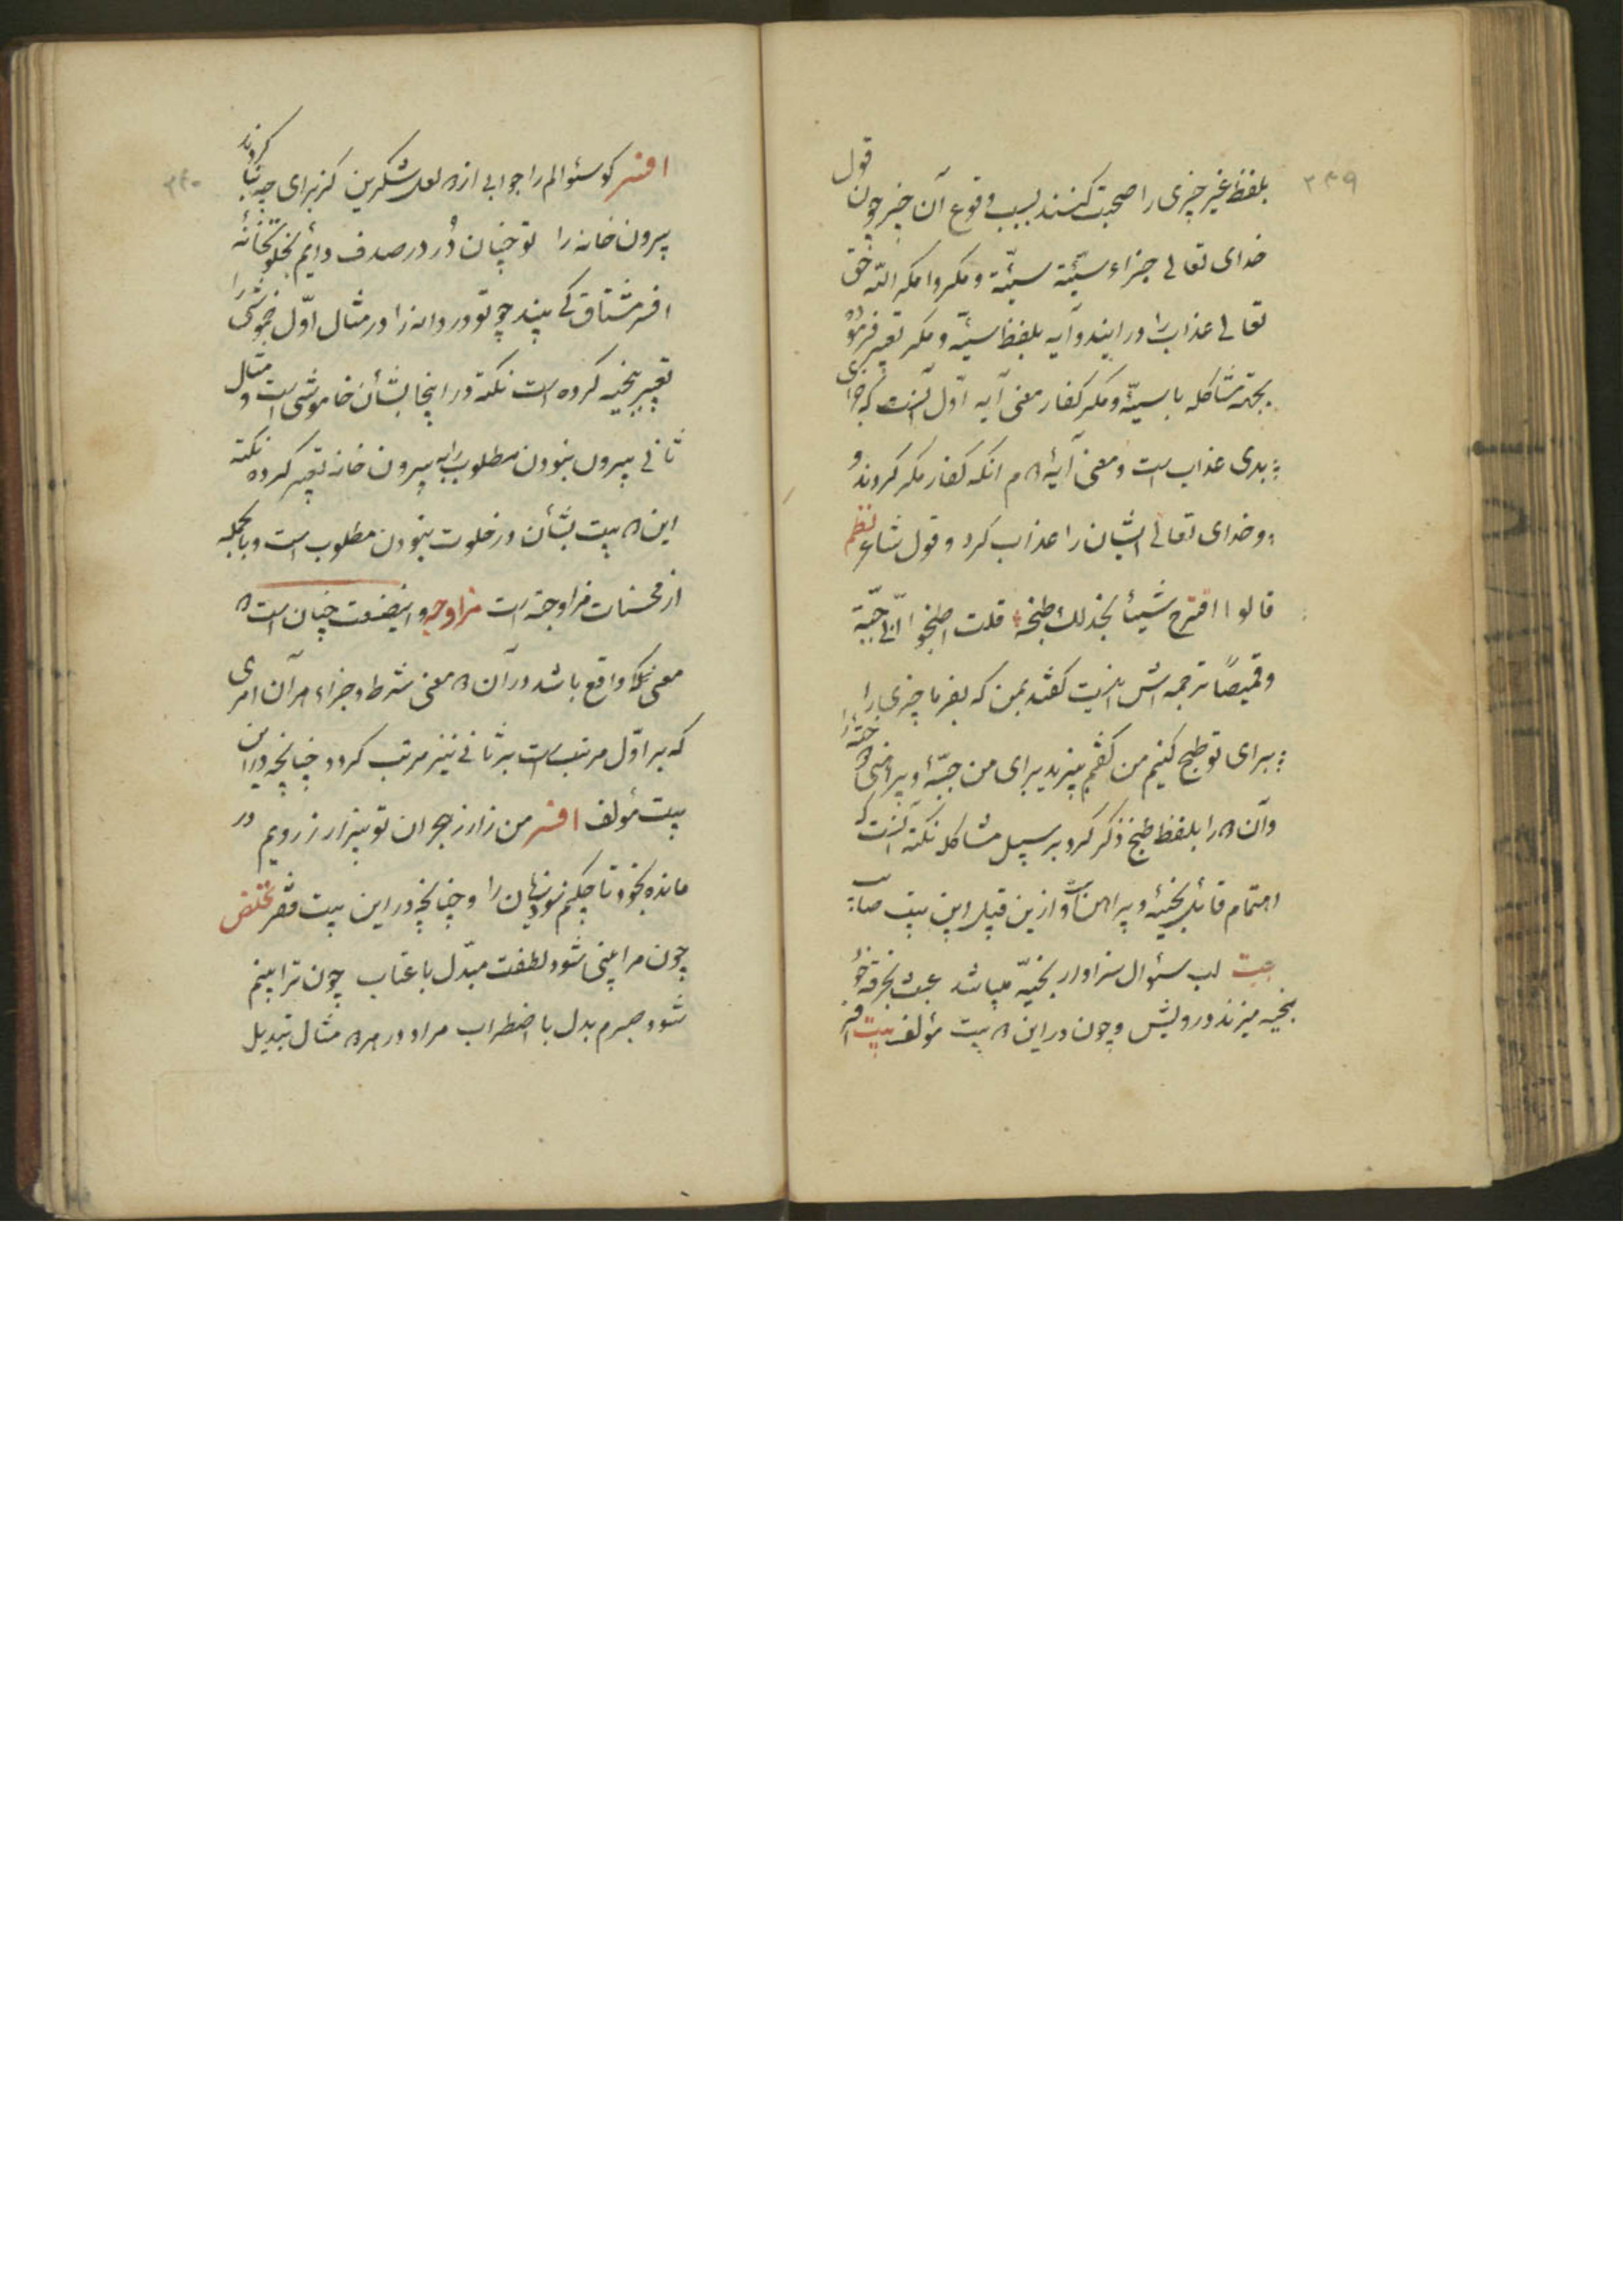 ۳۳۹
بلفظ غیر چیزی را صحبت کنند بسبب وقوع آن خیر چون قول
خدای تعالی جزاء سیّئة سیّئة و مکروا مکر اللّه حق
تعالی عذاب را در ایندو آیه بلفظ سیّئه و مکر تعبیر فرموده
بجهة مشاکله با سیّئه و مکر کفار معنی آیه اوّل آنست که جزای
بدی عذاب است و معنی آیهٔ ۲ م انکه کفار مکر کردند و
و خدای تعالی ایشان را عذاب کرد و قول شاعر نظم
قالوا اقترح شیئا نجد لک طبخه قلت اطبخوا لی جبّة
و قمیصاً ترجمه اش اینست گفتند بمن که بفرما چیزی را
برای تو طبخ کنیم من گفتم بپزید برای من جبّهٔ و پیراهنی
و آن ۲ را بلفظ طبخ ذکر کرد بر سبیل مشاکله نکته آنست که
اهتمام قائل بجبّهٔ و پیراهن است و ازین قبیل این بیت صائب
بیت لب سئوال سزاوار بخیّه میباشد عبث بخرقه خود
بخیه میزند درویش و چون در این ۲ بیت مؤلف بیت
۳۴۰
افسر کو سئوالم را جوابی از ۲ لعل شکرین کز برای چه بنا کردند
بیرون خانه را تو چنان دُر در صدف دائم بخلوتخانهٔ
افسر مشتاق کی بیند چو تو دردانه را در مثال اوّل خموشی را
تعبیر ببخیه کرده است نکته در اینجا بشأن خاموشی است و مثال
ثانی بیرون نبودن مطلوب را به بیرون خانه تعبیر کرده نکته
این ۲ بیت بشأن در خلوت نبودن مطلوب است و بالجمله
از محسنات مزاوجة است مزاوجه و اینصنعت چنان است ۲
معنی یکجا واقع باشد در آن ۲ معنی شرط و جزاء هر آن امری
که بر اوّل مرتب است بر ثانی نیز مرتب گردد چنانچه در این
بیت مؤلف افسر من زار ز هجران تو بیزار ز رویم در
مانده بخود تا چکنم سود و زیان را و چنانچه در این بیت فقر تخلص
چون مرا بینی شود لطفت مبدّل با عتاب چون ترا بینم
شود صبرم بدل با اضطراب مراد در هر ۲ مثال تبدیل